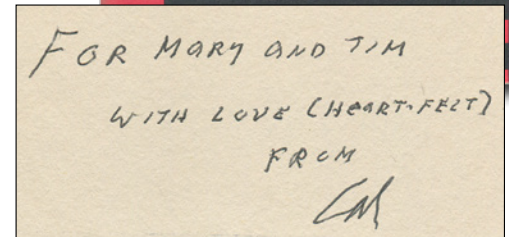 FOR MARY AND TIM
WITH LOVE (HEART-FELT)
FROM
Cal